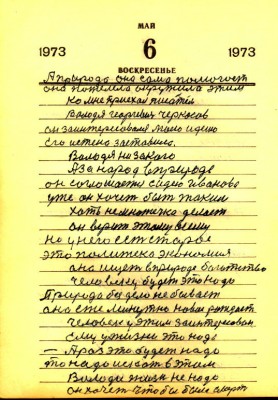 МАЙ
1973 6 1973
ВОСКРЕСЕНЬЕ
А природа она сама помогает
она пожелала окружила этим
ко мне приехал писатель
Володя Георгиевич Черкасов
он заинтересовался мною идеею
его истена заставила.
Володя на
Я за народ в природе
он соглошается Сидно Иваново
уже он хочет быть таким
хоть немножечко делает
он верит этому всему
но у него есть старое
это политека экономия
она ищет в природе богатство
человеку будет это надо
Природа без дела не бывает
она ежеминутно новая рождает
человек у этим заинтересован
ему у жизни это надо
— А раз это будет надо
то надо искать в этим
Володи жизнь не надо
он хочет чтобы была смерть